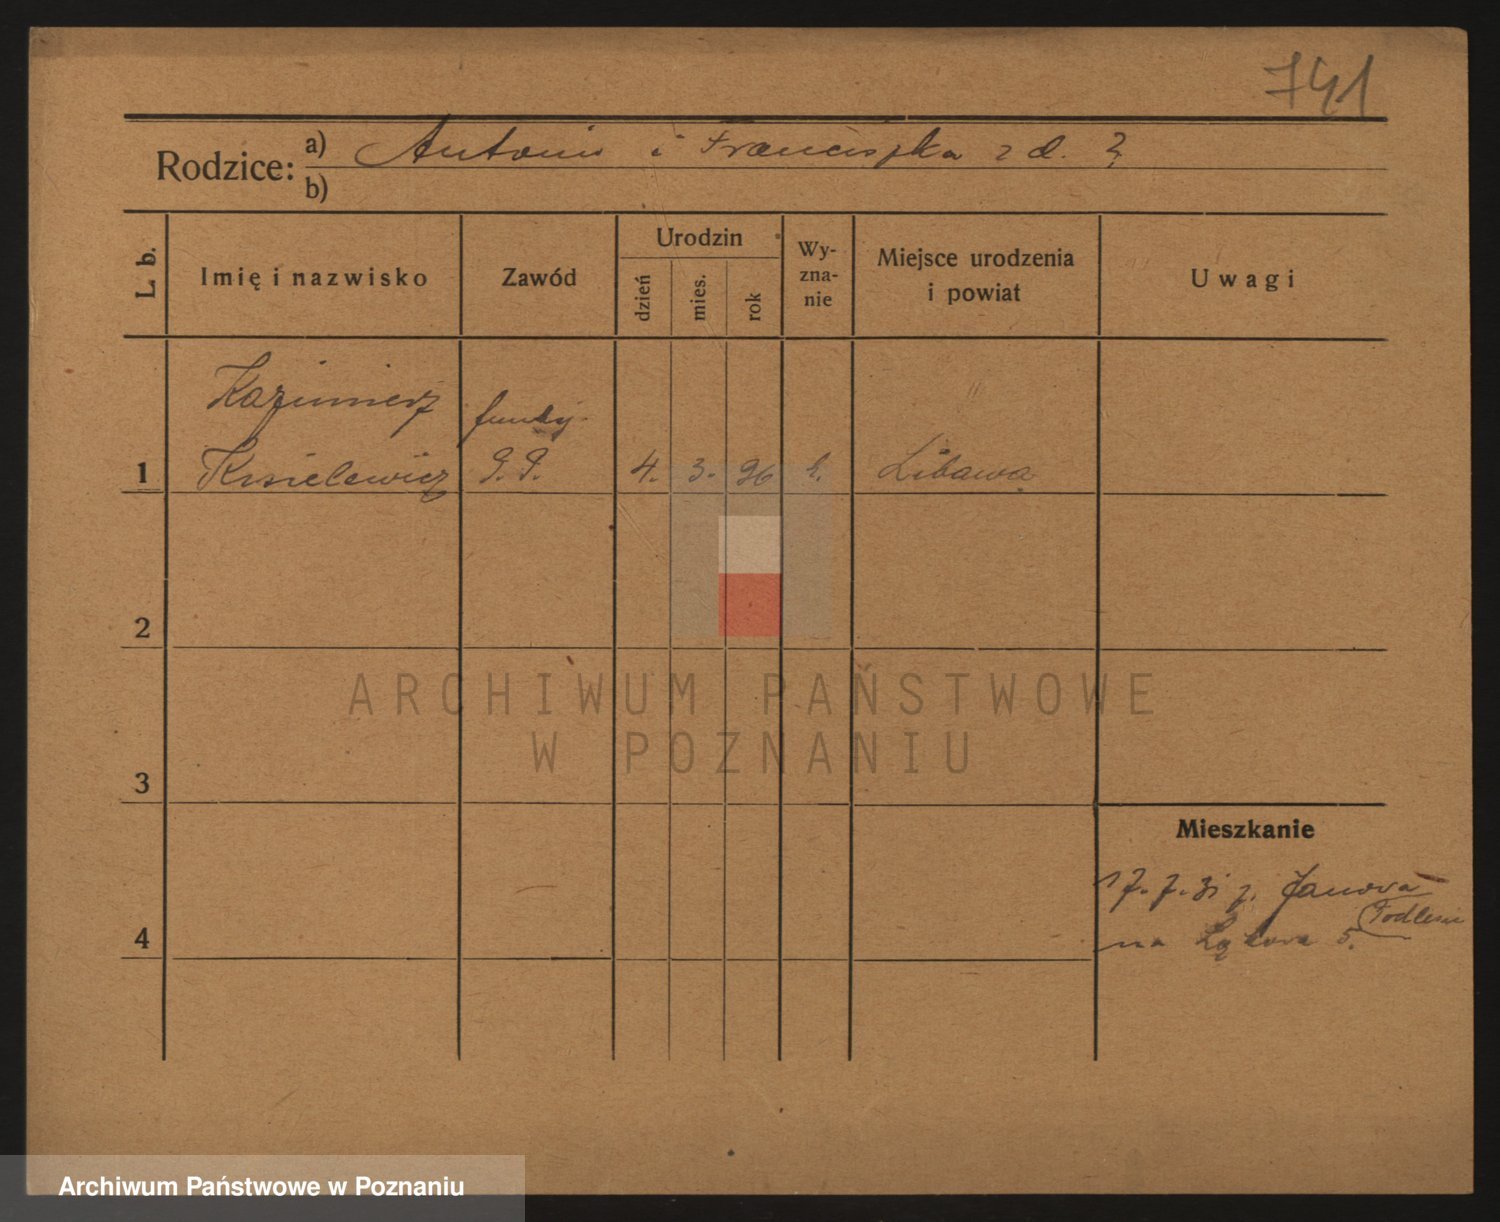 741
Rodzice: a) Antoni i Franciszka z d. ?
b)
L. b.
Imię i nazwisko
Zawód
Urodzin
dzień
mies.
rok
Wy-
zna-
nie
Miejsce urodzenia
i powiat
Uwagi
Kazimierz
funkcj.
1 Kisielewicz P.P. 4. 3. 96 k. Libawa
2
ARCHIWUM PAŃSTWOWE
W POZNANIU
3
Mieszkanie
17.7.31 z Janowa
Podlesie
na Łąkowa 5.
4
Archiwum Państwowe w Poznaniu